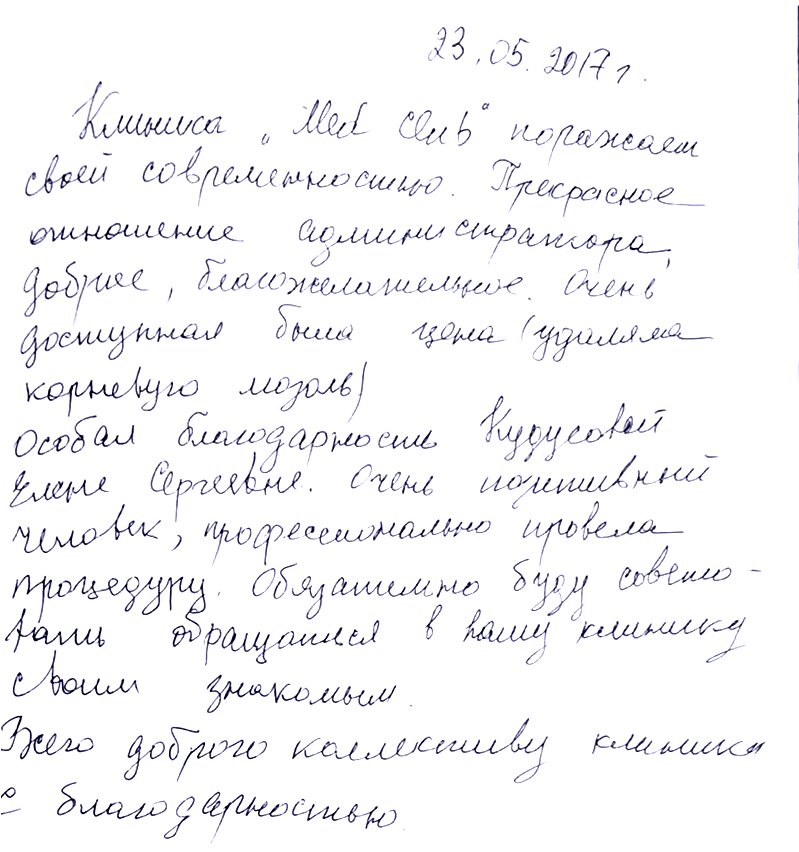 23.05.2017 г.
Клиника „Med Club" поражает
своей современностью. Прекрасное
отношение администратора,
доброе, благожелательное. Очень
доступная была цена (удаляла
корневую мозоль)
Особая благодарность Кудусовой
Елене Сергеевне. Очень позитивный
человек, профессионально провела
процедуру. Обязательно буду совето-
вать обращаться в вашу клинику
своим знакомым.
Всего доброго коллективу клиники
с благодарностью